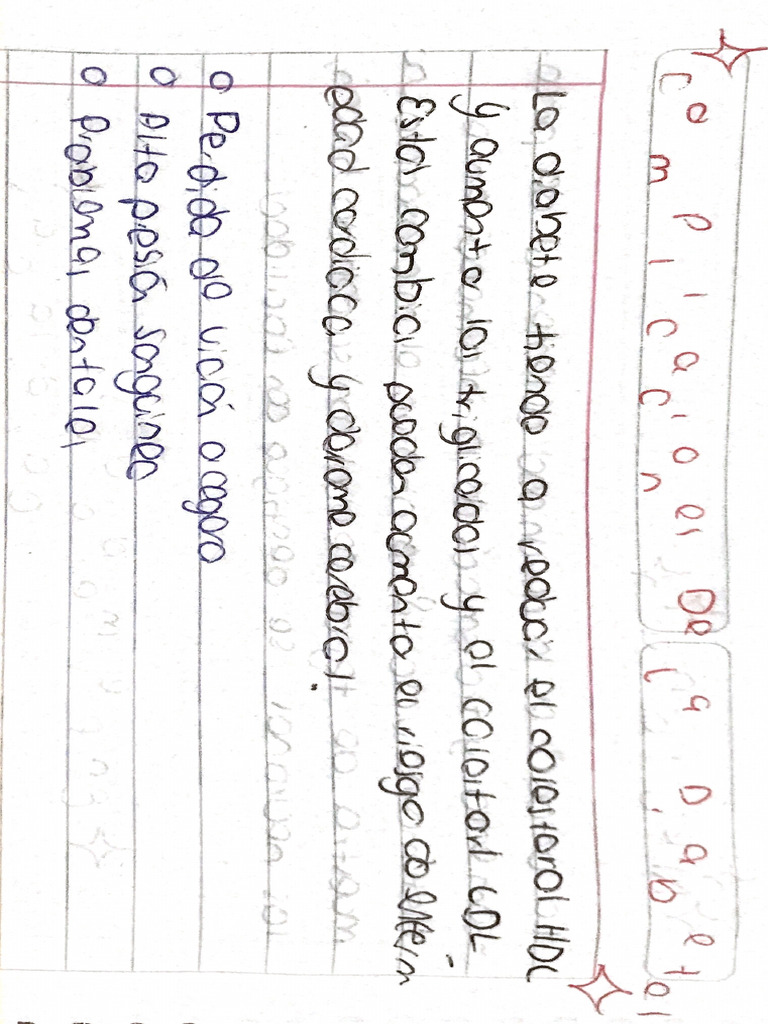 Complicaciones De la Diabetes
La diabetes tiende a reducir el colesterol HDL
y aumenta los trigliceridos y el colesterol LDL.
Estos cambios pueden aumenta el riesgo de enferm
edad cardiaca y derrame cerebral.
o Perdida de vición o cegera
o Alta presión sanguinea
o Problemas dentales